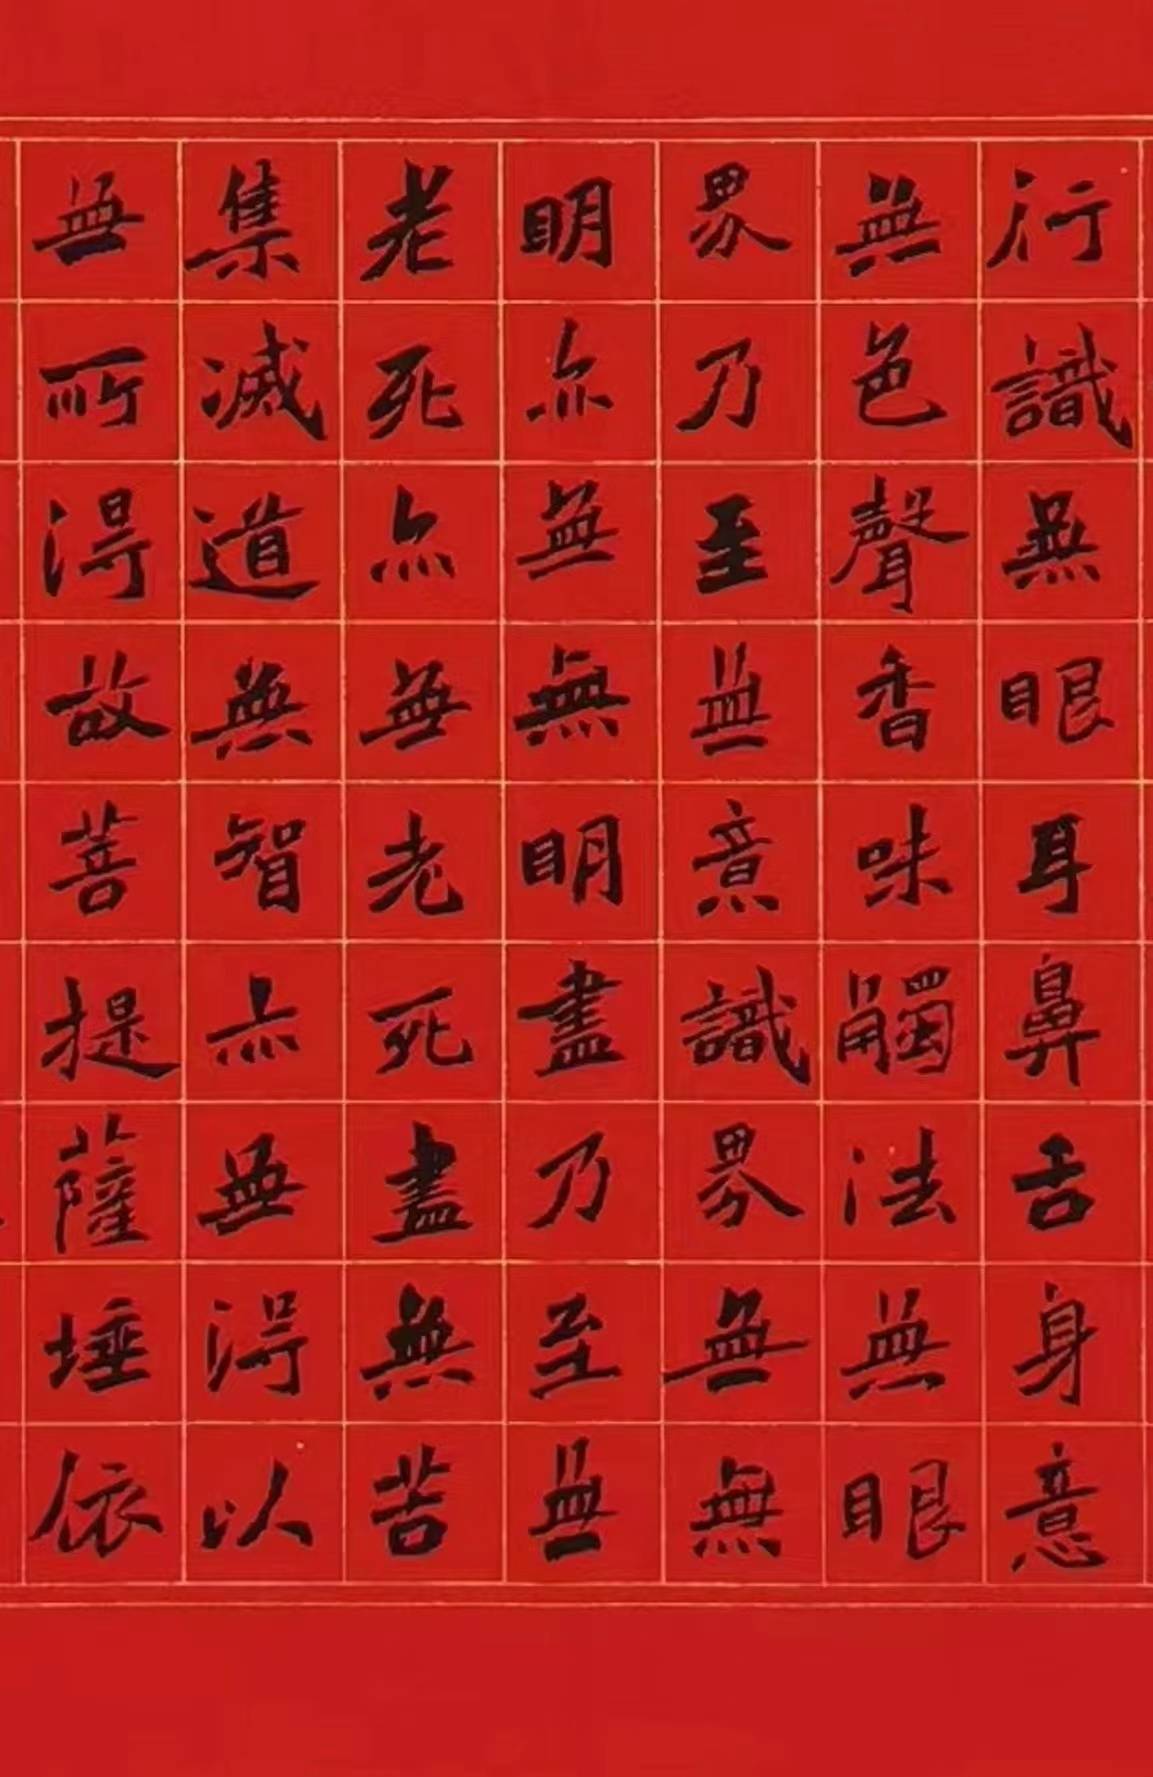 行識無眼耳鼻舌身意
無色聲香味觸法無眼
界乃至無意識界無無
明亦無無明盡乃至無
老死亦無老死盡無苦
集滅道無智亦無得以
無所得故菩提薩埵依